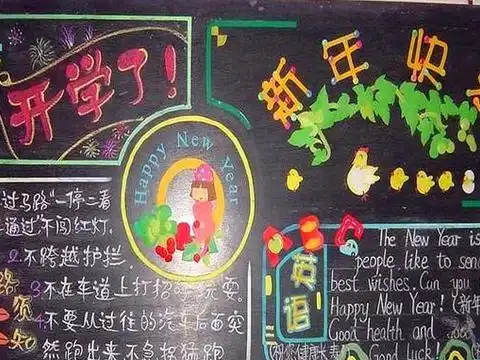 开学了!
新年
Happy New Year
过马路"一停二看
通过"不闯红灯.
2.不跨越护拦.
3.不在车道上打招呼玩耍.
4.不要从过往的汽车后面突
然跑出来不急控猛跑
须知
英语
The New Year is
people like to send
best wishes. Can you
Happy New Year! (新年
Good health and
Good Luck!